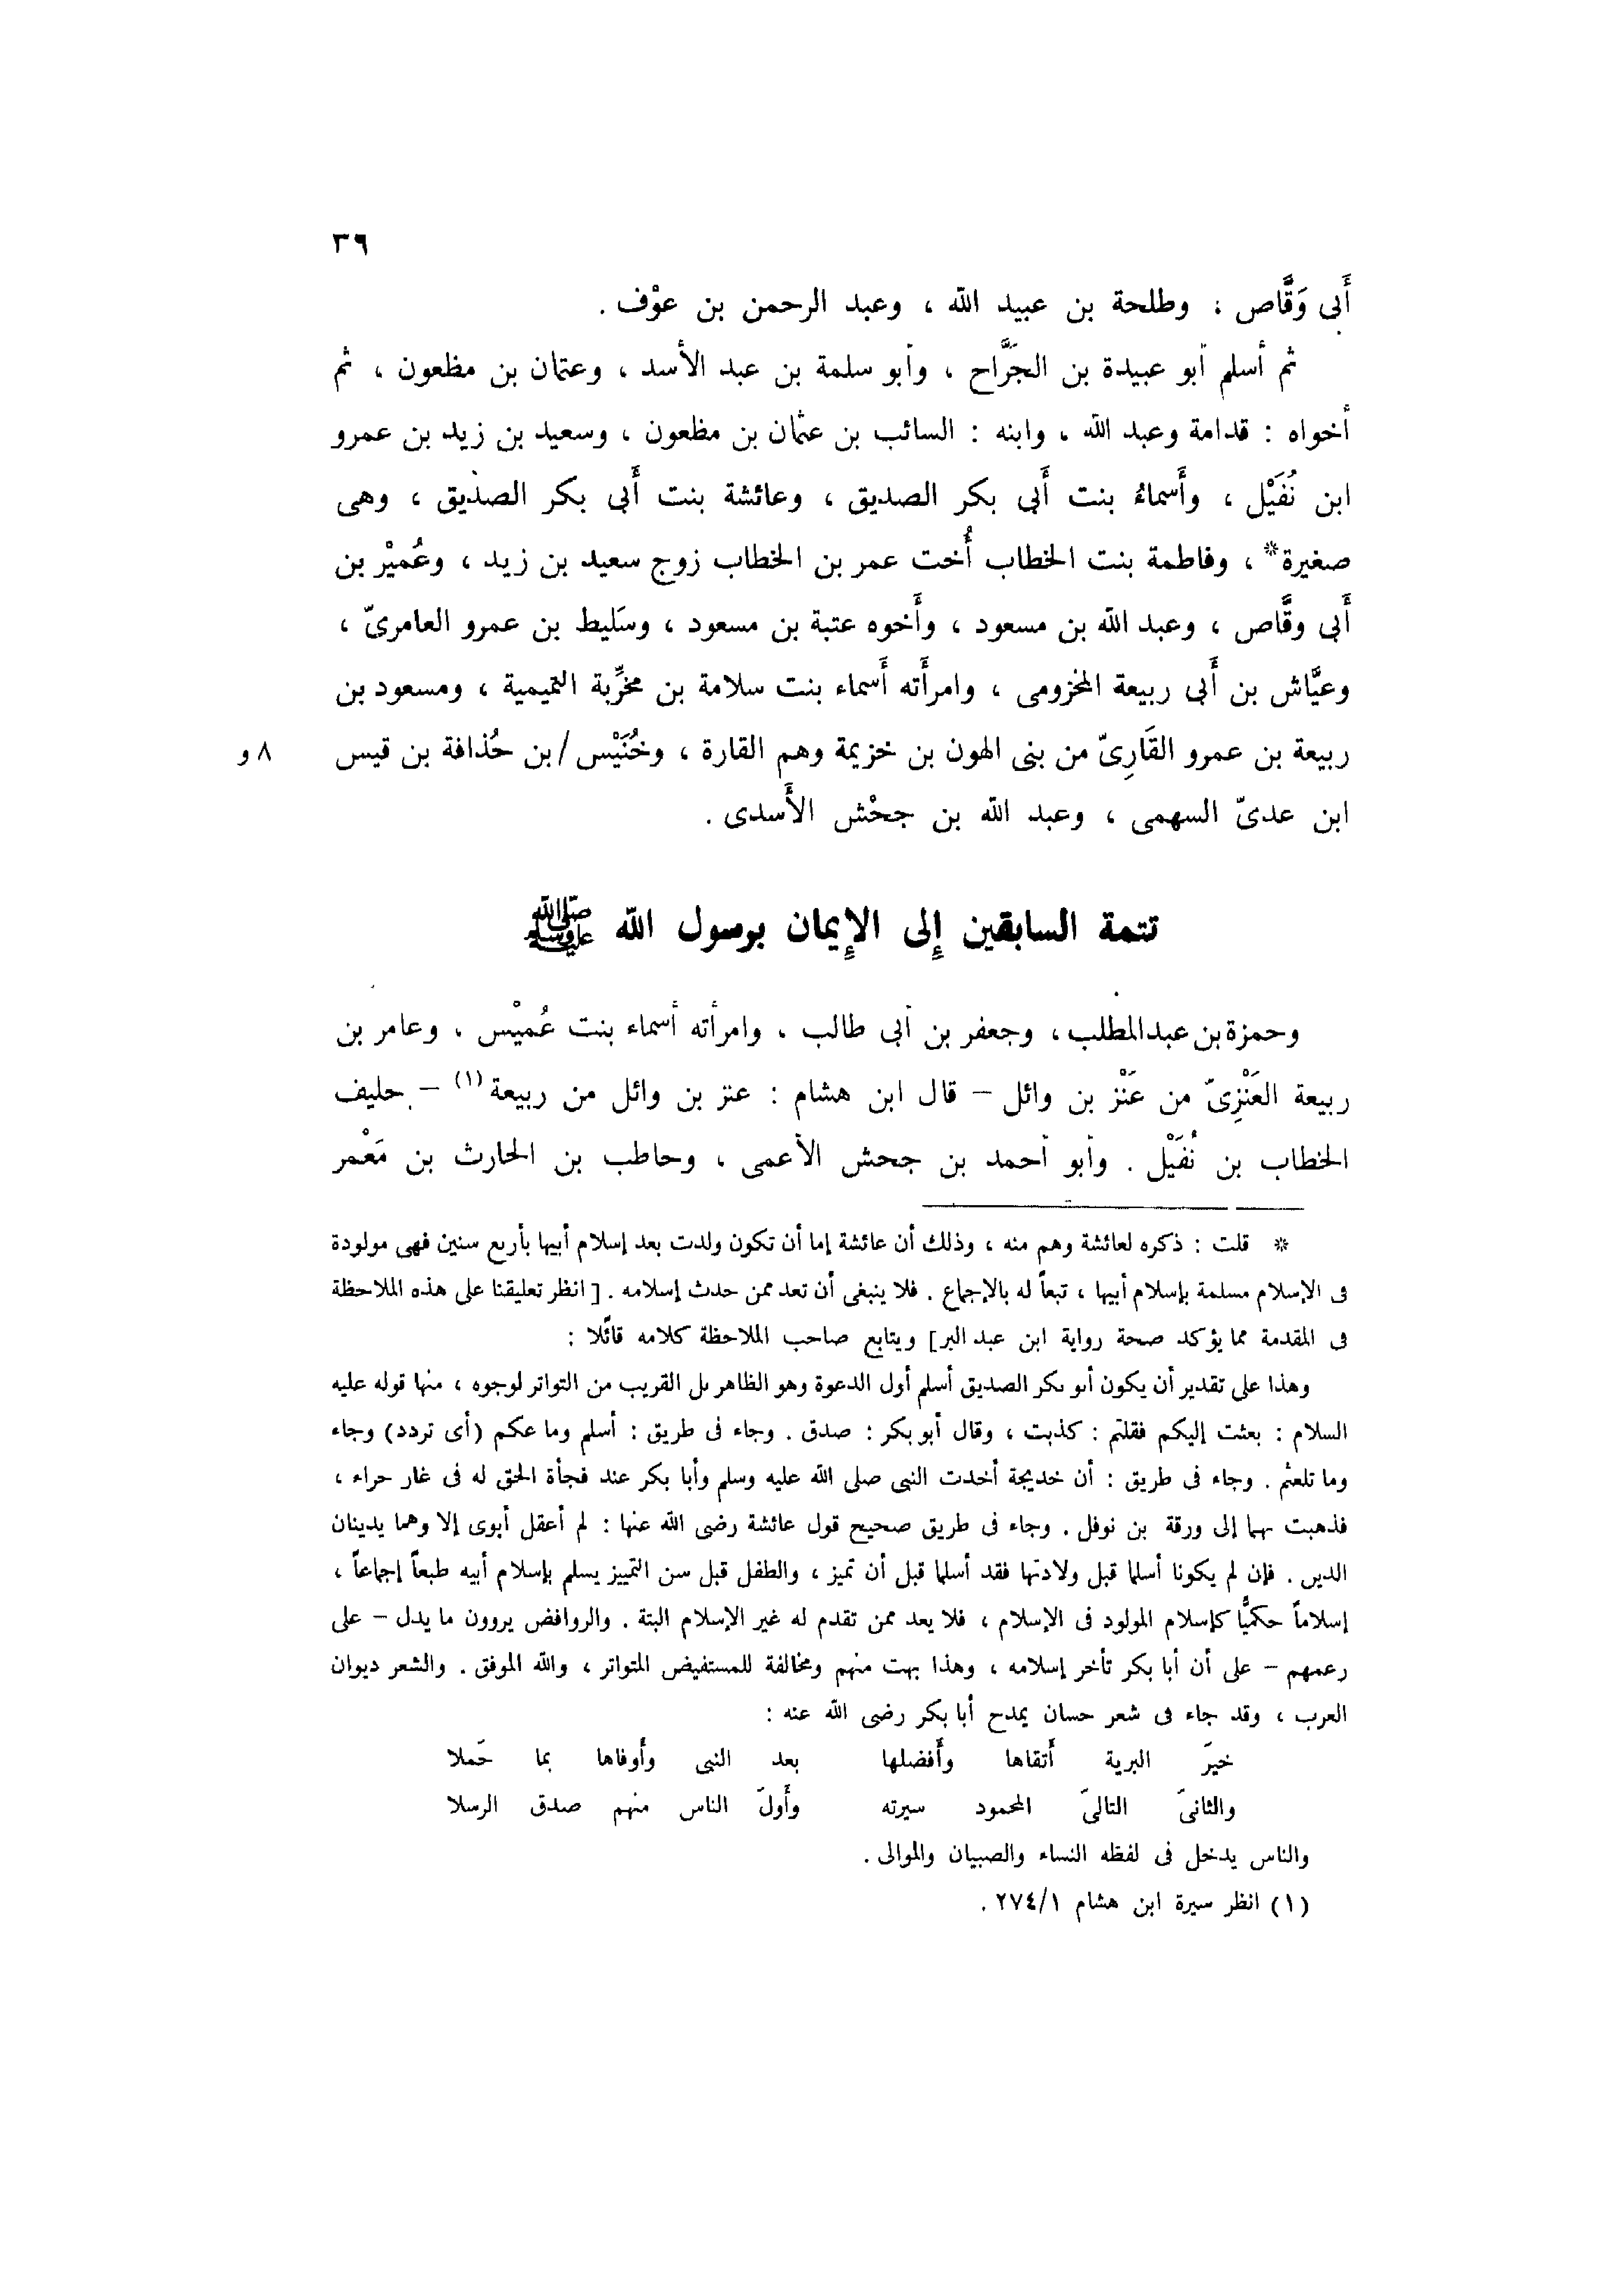 ٣٩
أَبى وَقَّاص ، وطلحة بن عبيد الله ، وعبد الرحمن بن عوْف .
ثم أسلم أبو عبيدة بن الجَرَّاح ، وأبو سلمة بن عبد الأسد ، وعثمان بن مظعون ، ثم
أخواه : قدامة وعبد الله ، وابنه : السائب بن عثمان بن مظعون ، وسعيد بن زيد بن عمرو
ابن نُفَيْل ، وأَسماءُ بنت أَبى بكر الصديق ، وعائشة بنت أَبى بكر الصدّيق ، وهى
صغيرة* ، وفاطمة بنت الخطاب أُخت عمر بن الخطاب زوج سعيد بن زيد ، وعُميْر بن
أَبى وقَّاص ، وعبد الله بن مسعود ، وأَخوه عتبة بن مسعود ، وسَليط بن عمرو العامرىّ ،
وعيَّاش بن أَبى ربيعة المخزومى ، وامرأَته أَسماء بنت سلامة بن مخَرِّبة التميمية ، ومسعود بن
ربيعة بن عمرو القَارِىّ من بنى الهون بن خزيمة وهم القارة ، وخُنَيْس / بن حُذافة بن قيس
٨ و
ابن عدىّ السهمى ، وعبد الله بن جحْش الأَسدى .
تتمة السابقين إلى الإيمان برسول الله ﷺ
وحمزة بن عبد المطلب ، وجعفر بن أبى طالب ، وامرأته أسماء بنت عُميْس ، وعامر بن
ربيعة العَنْزِىّ من عَنْز بن وائل – قال ابن هشام : عنز بن وائل من ربيعة (١) – حليف
الخطاب بن نُفَيْل . وأبو أحمد بن جحش الأعمى ، وحاطب بن الحارث بن مَعْمر
* قلت : ذكره لعائشة وهم منه ، وذلك أن عائشة إما أن تكون ولدت بعد إسلام أبيها بأربع سنين فهى مولودة
فى الإسلام مسلمة بإسلام أبيها ، تبعاً له بالإجماع . فلا ينبغى أن تعد ممن حدث إسلامه . [ انظر تعليقنا على هذه الملاحظة
فى المقدمة مما يؤكد صحة رواية ابن عبد البر ] ويتابع صاحب الملاحظة كلامه قائلا :
وهذا على تقدير أن يكون أبو بكر الصديق أسلم أول الدعوة وهو الظاهر بل القريب من التواتر لوجوه ، منها قوله عليه
السلام : بعثت إليكم فقلتم : كذبت ، وقال أبو بكر : صدق . وجاء فى طريق : أسلم وما عكم (أى تردد) وجاء
وما تلعثم . وجاء فى طريق : أن خديجة أخذت النبى صلى الله عليه وسلم وأبا بكر عند فجأة الحق له فى غار حراء ،
فذهبت بهما إلى ورقة بن نوفل . وجاء فى طريق صحيح قول عائشة رضى الله عنها : لم أعقل أبوى إلا وهما يدينان
الدين . فإن لم يكونا أسلما قبل ولادتها فقد أسلما قبل أن تميز ، والطفل قبل سن التمييز يسلم بإسلام أبيه طبعاً إجماعاً ،
إسلاماً حكميًّا كإسلام المولود فى الإسلام ، فلا يعد ممن تقدم له غير الإسلام البتة . والروافض يروون ما يدل – على
زعمهم – على أن أبا بكر تأخر إسلامه ، وهذا بهت منهم ومخالفة للمستفيض المتواتر ، والله الموفق . والشعر ديوان
العرب ، وقد جاء فى شعر حسان يمدح أبا بكر رضى الله عنه :
خيرَ البرية أَتقاها وأَفضلها بعد النبى وأَوفاها بما حَملا
والثانىَ التالىَ المحمود سيرته وأَولَ الناس منهم صدق الرسلا
والناس يدخل فى لفظه النساء والصبيان والموالى .
(١) انظر سيرة ابن هشام ٢٧٤/١ .